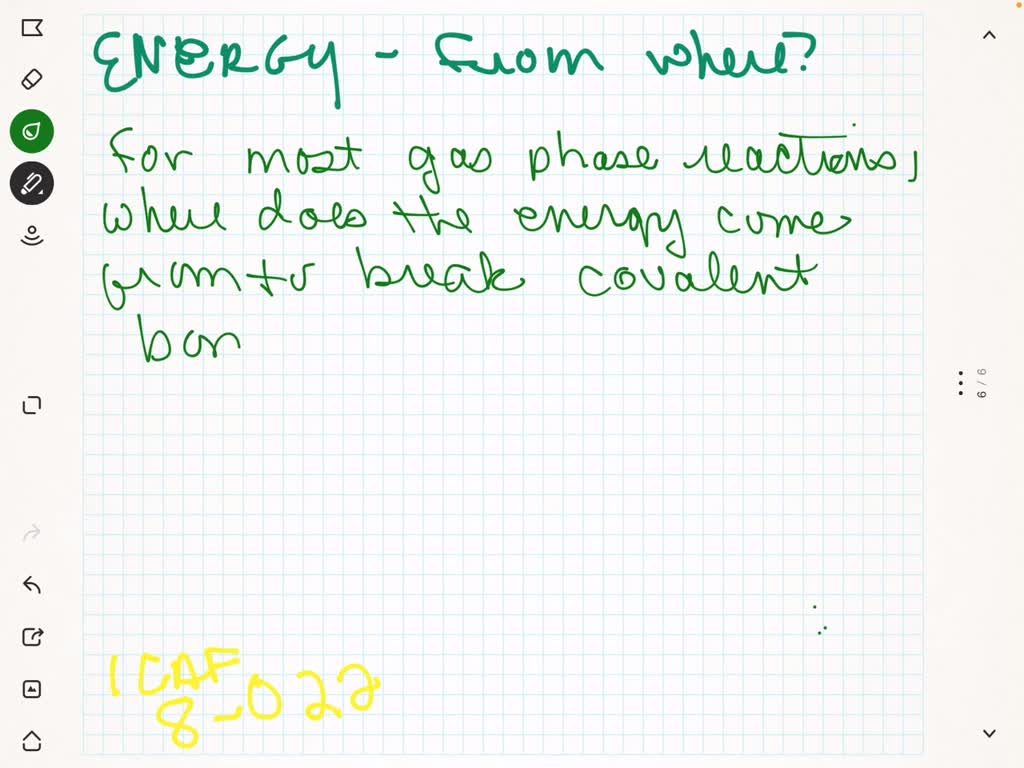 ENERGY - From where?
For most gas phase reactions,
where does the energy come
from to break covalent
bon
1CAF
8-022
6 / 6